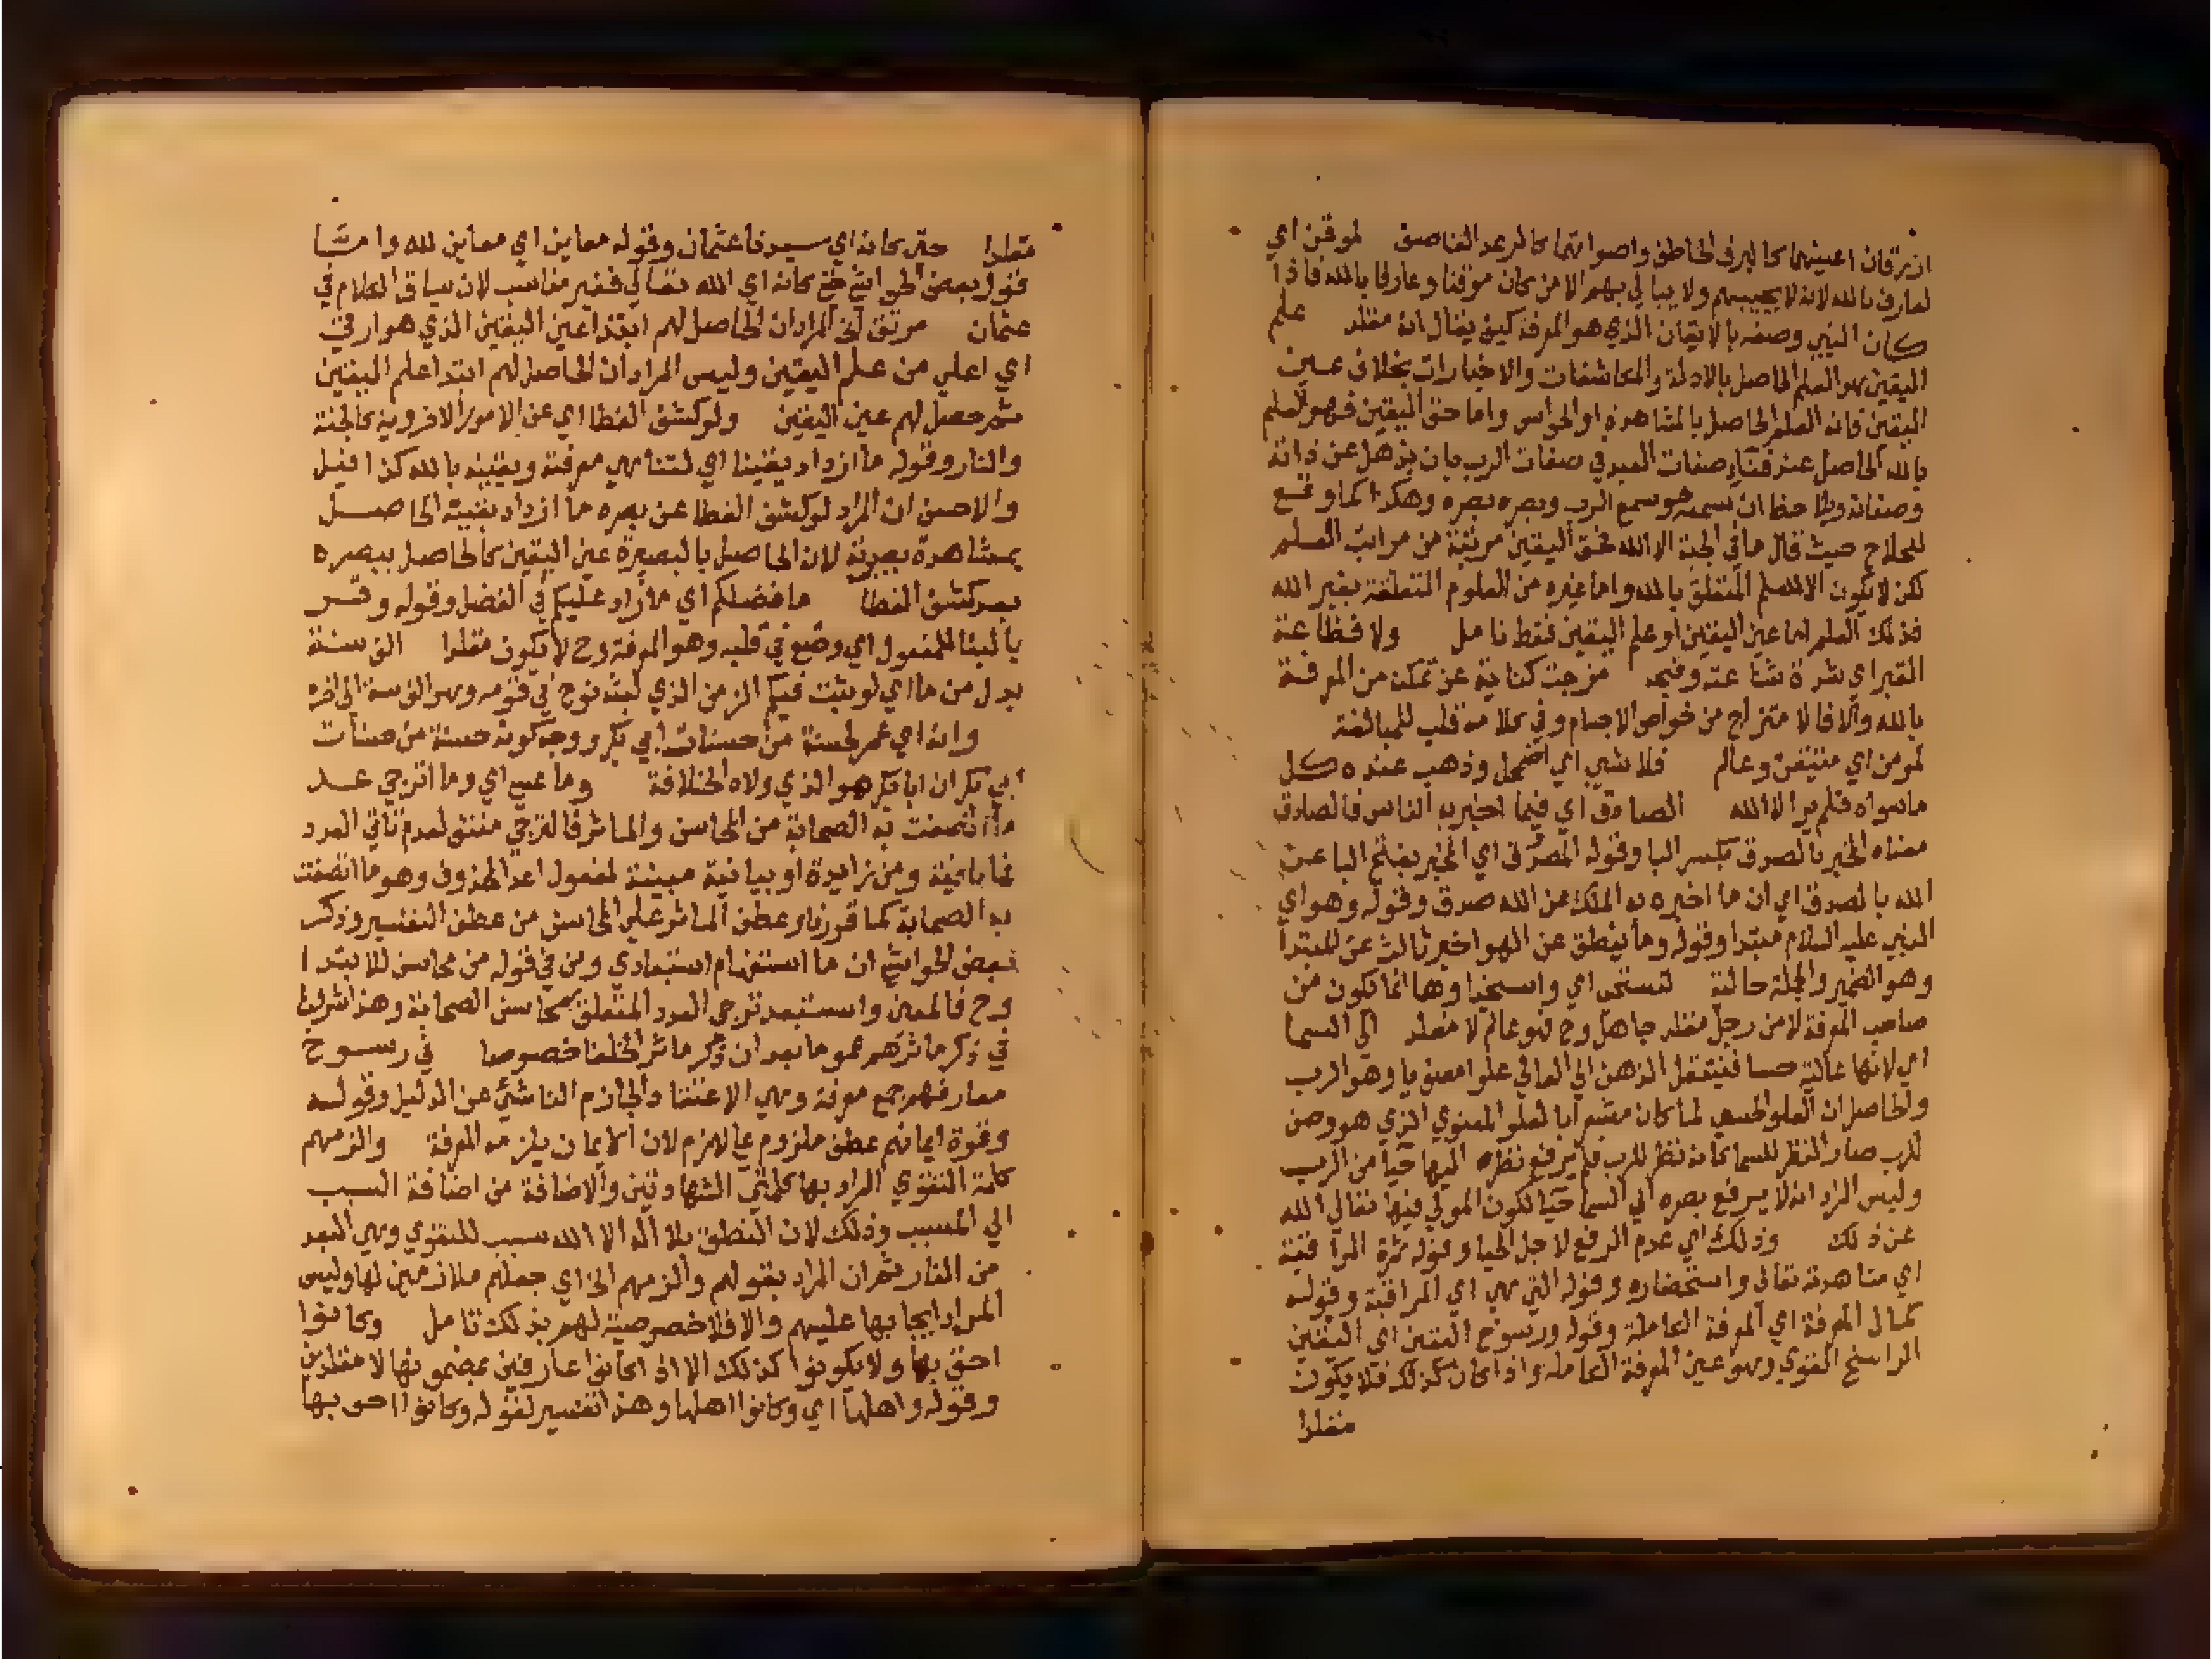 ازرقان اعينهما كالبرق الخاطف واصواتهما كالرعد القاصف لموقن اي
لعارف بالله لانه لا يجيبهم ولا يبالي بهم الا من كان موقنا وعارفا بالله فاذا
كان النبي وصفه بالايقان الذي هو المعرفة كيف يقال انه مقلد علم
اليقين هو العلم الحاصل بالادلة والمكاشفات والاخبارات بخلاف عين
اليقين فانه العلم الحاصل بالمشاهدة او الحواس واما حق اليقين فهو العلم
بالله الحاصل عند فناء صفات العبد في صفات الرب بان يذهل عن ذاته
وصفاته ويلاحظ ان سمعه هو سمع الرب وبصره بصره وهكذا كما وقع
للحلاج حيث قال ما في الجبة الا الله فحق اليقين مرتبة من مراتب العلم
لكن لا يكون الا للعلم المتعلق بالله واما غيره من العلوم المتعلقة بغير الله
فذلك العلم اما عين اليقين او علم اليقين فقط تامل ولا فظاعة
القبر اي شدة شناعته وقبحه مزجت كناية عن تمكن من المعرفة
بالله والا فالامتزاج من خواص الاجسام وفي كلامه قلب للمبالغة
لمومن اي متيقن وعالم فلا شي اي اضمحل وذهب عنده كل
ما سواه فلم ير الا الله الصادق اي فيما اخبر به الناس فالصادق
معناه المخبر بالصدق بكسر البا وقوله المصدق اي المخبر بفتح البا عن
الله بالصدق اي ان ما اخبره به الملك عن الله صدق وقوله وهو اي
النبي عليه السلام مبتدا وقوله وما ينطق عن الهوا خبر ثالث عن المبتدا
وهو الضمير والجملة حالية لتستحى اي واستحيا وهما انما يكون من
صاحب المعرفة لا من رجل مقلد جاهل وح فهو عالم لا مقلد الي السما
اي لانها عالية حسا فينتقل الذهن الي العالي علوا معنويا وهو الرب
والحاصل ان العلو الحسي لما كان مشعرا بالعلو المعنوي الذي هو وصف
للرب صار النظر للسما كانه نظر للرب فلم يرفع نظره اليها حيا من الرب
وليس المراد انه لا يرفع بصره الي السما حيا لكون المولي فيها تعالي الله
عن ذلك وذلك اي عدم الرفع لاجل الحيا وقوله ثمرة المراقبة
اي مشاهدته تعالى واستحضاره وقوله التي هي اي المراقبة وقوله
كمال المعرفة اي المعرفة الكاملة وقوله ورسوخ اليقين اي اليقين
الراسخ القوي وهو عين المعرفة الكاملة واذا كان كذلك فلا يكون
مقلدا
مقلدا حتى كانه اي سيدنا عثمان وقوله معاين اي معاين لله وامـا
قول بعض الحواشي كانه اي الله تعالي فغير مناسب لان سياق الكلام في
عثمان مرتق الخ المراد ان الحاصل لهم ابتدا عين اليقين الذي هو ارقي
اي اعلي من علم اليقين وليس المراد ان الحاصل لهم ابتدا علم اليقين
ثم حصل لهم عين اليقين ولو كشف الغطا اي عن الامور الاخروية كالجنة
والنار وقوله ما ازداد يقينا اي لتناهي معرفته ويقينه بالله كذا قيل
والاحسن ان المراد لو كشف الغطا عن بصره ما ازداد يقينه الحاصل
بمشاهدة بصيرته لان الحاصل بالبصيرة عين اليقين كالحاصل ببصره
بعد كشف الغطا ما فضلكم اي ما زاد عليكم في الفضل وقوله وقر
بالبنا للمفعول اي وضع في قلبه وهو المعرفة وح لا يكون مقلدا الف سنة
بدل من ما اي لو لبثت فيكم الزمن الذي لبثه نوح في قومه وهو الف سنة الى اخره
وانه اي عمر لحسنة من حسنات ابي بكر ووجه كونه حسنة من حسنات
ابي بكر ان ابا بكر هو الذي ولاه الخلافة وما عسي اي وما اترجي عد
ما اتصفت به الصحابة من المحاسن والماثر فالترجي منتف لعدم تاتي العدد
فما نافية ومن زايدة او بيانية مبينة لمفعول اعد المحذوف وهو ما اتصفت
به الصحابة كما قررنا وعطف الماثر علي المحاسن من عطف التفسير وذكر
بعض الحواشي ان ما استفهام استبعادي ومن في قوله من محاسن للابتدا
وح فالمعنى واستبعد ترجي العدد المتعلق بمحاسن الصحابة وهذا شروع
في ذكر ماثرهم عموما بعد ان ذكر ماثر الخلفا خصوصا في رسوخ
معارفهم جمع معرفة وهي الاعتقاد الجازم الناشئ عن الدليل وقوله
وقوة ايمانهم عطف ملزوم علي لازم لان الايمان يلزمه المعرفة والزمهم
كلمة التقوي المراد بها كلمتي الشهادتين والاضافة من اضافة السبب
الي المسبب وذلك لان النطق بلا اله الا الله سبب للتقوي وهي البعد
من النار ثم ان المراد بقولهم والزمهم الخ اي جعلهم ملازمين لها وليس
المراد ايجابها عليهم والا فلا خصوصية لهم بذلك تامل وكانوا
احق بها ولا يكونوا كذلك الا اذا كانوا عارفين بمضمونها لا مقلدين
وقوله واهلها اي وكانوا اهلها وهذا تفسير لقوله وكانوا احق بها